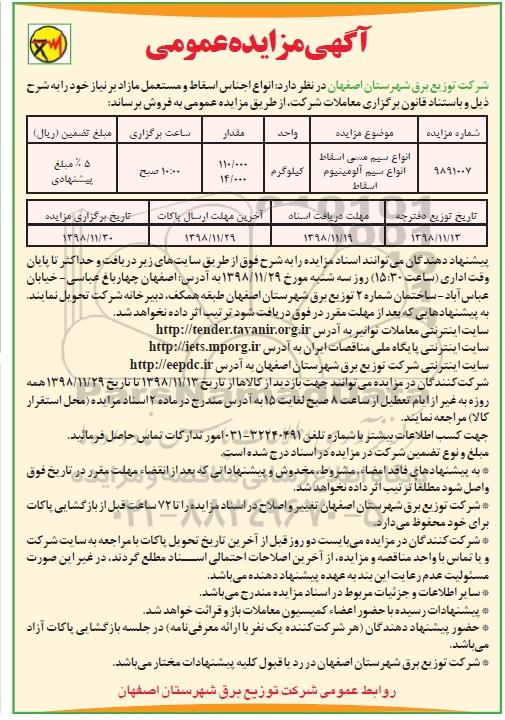 آگهی مزایده عمومی
شرکت توزیع برق شهرستان اصفهان در نظر دارد: انواع اجناس اسقاط و مستعمل مازاد بر نیاز خود را به شرح
ذیل و باستناد قانون برگزاری معاملات شرکت، از طریق مزایده عمومی به فروش برساند:
شماره مزایده موضوع مزایده واحد مقدار ساعت برگزاری مبلغ تضمین (ریال)
۹۸۹۱۰۰۷ انواع سیم مسی اسقاط انواع سیم آلومینیوم اسقاط کیلوگرم ۱۱۰/۰۰۰ ۱۴/۰۰۰ ۱۰:۰۰ صبح ۵ ٪ مبلغ پیشنهادی
تاریخ توزیع دفترچه مهلت دریافت اسناد آخرین مهلت ارسال پاکات تاریخ برگزاری مزایده
۱۳۹۸/۱۱/۱۳ ۱۳۹۸/۱۱/۱۹ ۱۳۹۸/۱۱/۲۹ ۱۳۹۸/۱۱/۳۰
پیشنهاد دهندگان می توانند اسناد مزایده را به شرح فوق از طریق سایت‌های زیر دریافت و حداکثر تا پایان
وقت اداری (ساعت ۱۵:۳۰) روز سه شنبه مورخ ۱۳۹۸/۱۱/۲۹ به آدرس: اصفهان چهارباغ عباسی - خیابان
عباس آباد - ساختمان شماره ۲ توزیع برق شهرستان اصفهان طبقه همکف، دبیرخانه شرکت تحویل نمایند.
به پیشنهادهایی که بعد از مهلت مقرر در فوق دریافت شود ترتیب اثر داده نخواهد شد.
سایت اینترنتی معاملات توانیر به آدرس http://tender.tavanir.org.ir
سایت اینترنتی پایگاه ملی مناقصات ایران به آدرس http://iets.mporg.ir
سایت اینترنتی شرکت توزیع برق شهرستان اصفهان به آدرس http://eepdc.ir
شرکت‌کنندگان در مزایده می‌توانند جهت بازدید از کالاها از تاریخ ۱۳۹۸/۱۱/۱۳ تا تاریخ ۱۳۹۸/۱۱/۲۹ همه
روزه به غیر از ایام تعطیل از ساعت ۸ صبح لغایت ۱۵ به آدرس مندرج در ماده ۲ اسناد مزایده (محل استقرار
کالا) مراجعه نمایند.
جهت کسب اطلاعات بیشتر با شماره تلفن ۳۲۲۴۰۴۹۱-۰۳۱ امور تدارکات تماس حاصل فرمائید.
مبلغ و نوع تضمین شرکت در مزایده در اسناد درج شده است.
* به پیشنهادهای فاقد امضاء، مشروط، مخدوش و پیشنهاداتی که بعد از انقضاء مهلت مقرر در تاریخ فوق
واصل شود مطلقاً ترتیب اثر داده نخواهد شد.
* شرکت توزیع برق شهرستان اصفهان تغییر و اصلاح در اسناد مزایده را تا ۷۲ ساعت قبل از بازگشایی پاکات
برای خود محفوظ می‌دارد.
* شرکت کنندگان در مزایده می‌بایست دو روز قبل از آخرین تاریخ تحویل پاکات با مراجعه به سایت شرکت
و یا تماس با واحد مناقصه و مزایده، از آخرین اصلاحات احتمالی اسناد مطلع گردند، در غیر این صورت
مسئولیت عدم رعایت این بند به عهده پیشنهاد دهنده می‌باشد.
* سایر اطلاعات و جزئیات مربوط در اسناد مزایده مندرج می‌باشد.
* پیشنهادات رسیده با حضور اعضاء کمیسیون معاملات باز و قرائت خواهد شد.
* حضور پیشنهاد دهندگان (هر شرکت کننده یک نفر با ارائه معرفی‌نامه) در جلسه بازگشایی پاکات آزاد
می‌باشد.
* شرکت توزیع برق شهرستان اصفهان در رد یا قبول کلیه پیشنهادات مختار می‌باشد.
روابط عمومی شرکت توزیع برق شهرستان اصفهان